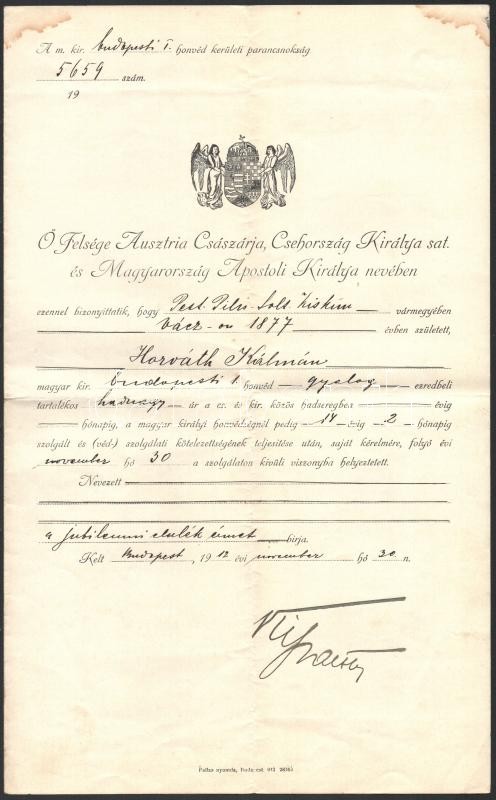 A m. kir. budapesti I. honvéd kerületi parancsnokság
5659 szám.
19
Ő Felsége Ausztria Császárja, Csehország Királya sat.
és Magyarország Apostoli Királya nevében
ezennel bizonyittatik, hogy Pest Pilis Solt Kiskun vármegyében
Vácz-on 1877 évben született,
Horváth Kálmán
magyar kir. budapesti 1. honvéd gyalog ezredbeli
tartalékos hadnagy úr a cs. és kir. közös hadseregben évig
hónapig, a magyar királyi honvédségnél pedig 14 évig 2 hónapig
szolgált és (véd-) szolgálati kötelezettségének teljesitése után, saját kérelmére, folyó évi
november hó 30 a szolgálaton kívüli viszonyba helyeztetett.
Nevezett
a jubileumi emlék érmet birja.
Kelt Budapest, 1912 évi november hó 30 n.
Pallas nyomda, Budapest 912